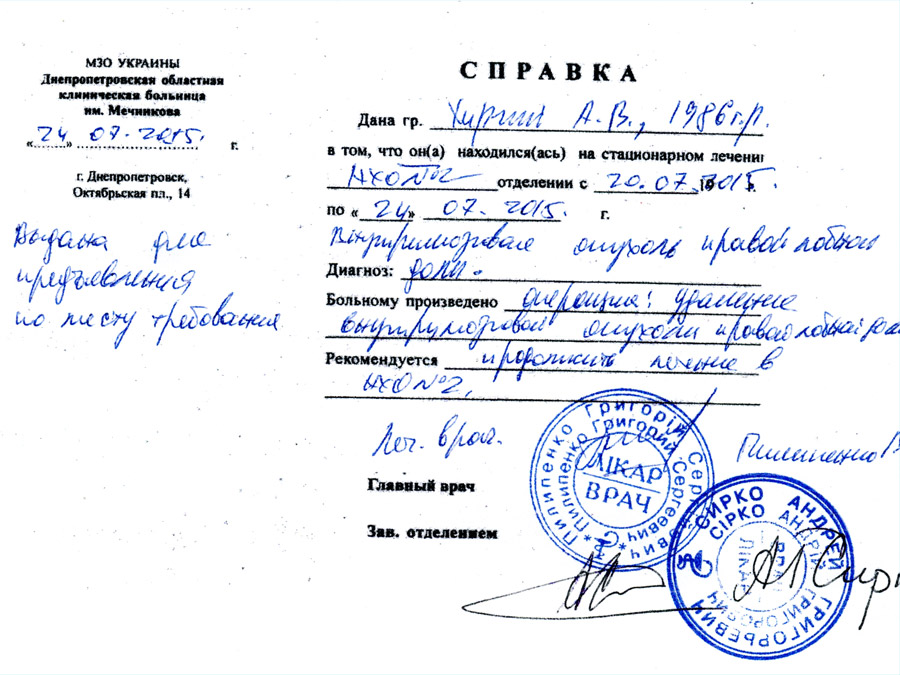 МЗО УКРАИНЫ
Днепропетровская областная
клиническая больница
им. Мечникова
«24» 07. 2015. г.
г. Днепропетровск,
Октябрьская пл., 14
Выдана для
предъявления
по месту требования
СПРАВКА
Дана гр. А.В., 1986 г.р.
в том, что он(а) находился(ась) на стационарном лечении
НХО№2 отделении с 20.07.2015 г.
по «24» 07. 2015. г.
опухоль правой лобной
Диагноз: доли.
Больному произведено операция: удаление
опухоли правой лобной доли
Рекомендуется продолжить лечение в
НХО№2.
Леч. врач. Пилипенко
Главный врач
Зав. отделением
Пилипенко Григорій Сергійович
Пилипенко Григорий Сергеевич
ЛІКАР
ВРАЧ
СИРКО АНДРЕЙ ГРИГОРЬЕВИЧ
СІРКО АНДРІЙ ГРИГОРОВИЧ
ВРАЧ
ЛІКАР